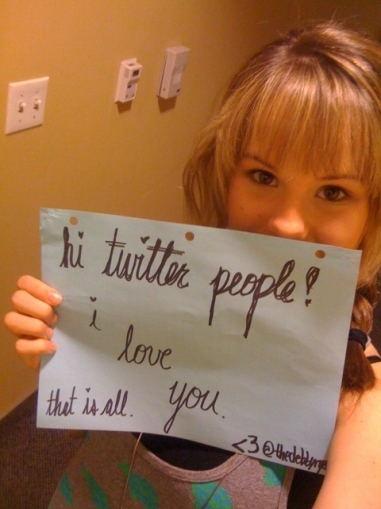 hi twitter people!
i
love
you.
that is all.